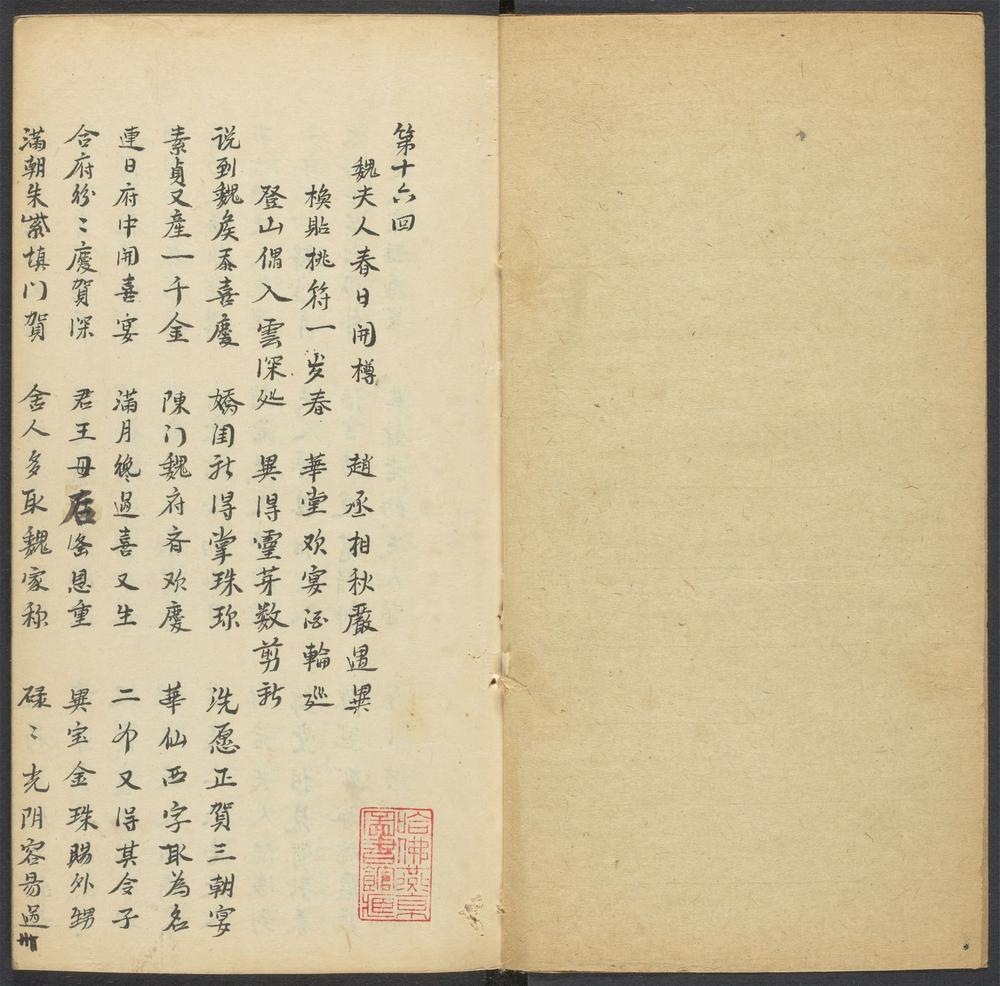 第十六回
魏夫人春日開樽 趙丞相秋嚴遇異
換貼桃符一岁春 華堂欢宴酒輪巡
登山偶入雲深处 異得靈芽数剪新
说到魏矦添喜慶 嬌闺新得掌珠珎 洗愿正賀三朝宴
素貞又産一千金 陳门魏府斉欢慶 華仙西字取為名
連日府中開喜宴 满月纔過喜又生 二弟又得其令子
合府紛〻慶賀深 君王母后恩重 異宝金珠賜外甥
满朝朱紫填门賀 舍人多取魏家称 碌〻光阴容易過
哈佛燕京圖書館藏